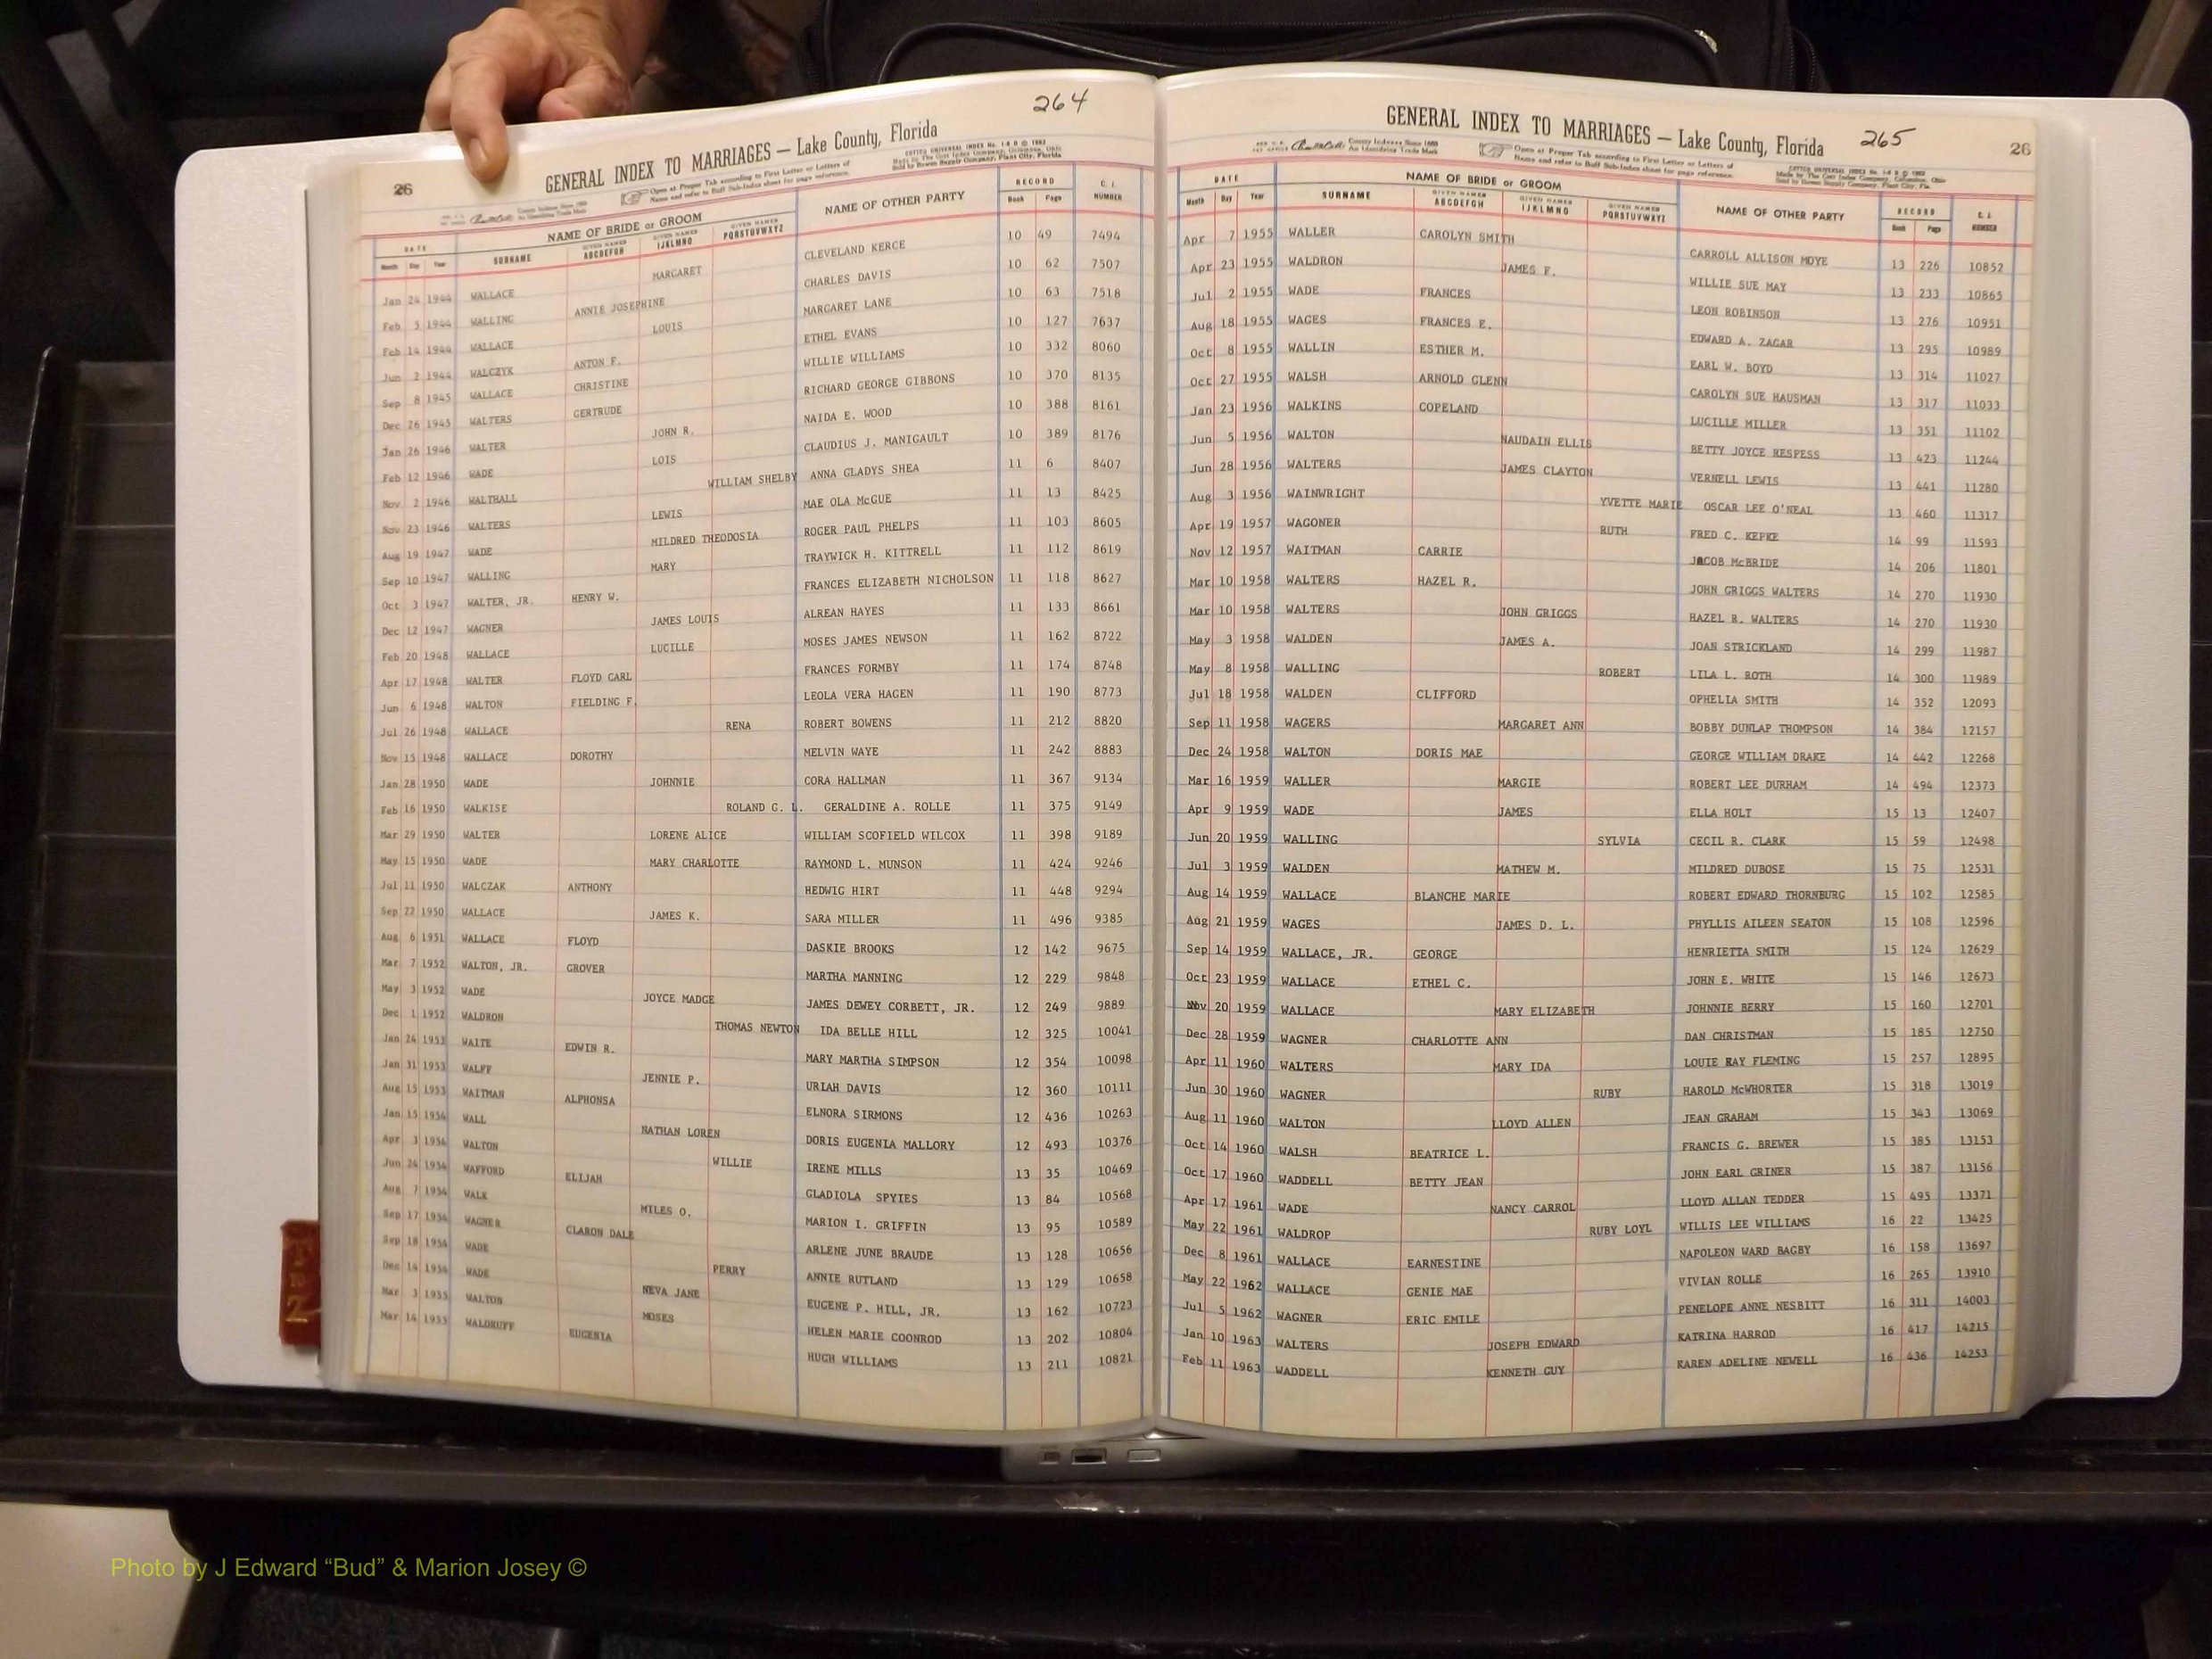 264
26
GENERAL INDEX TO MARRIAGES — Lake County, Florida
Open at Proper Tab according to First Letter or Letters of
Name and refer to Buff Sub-Index sheet for page reference.
DATE NAME OF BRIDE or GROOM NAME OF OTHER PARTY RECORD C. I. NUMBER
Month Day Year SURNAME GIVEN NAMES ABCDEFGH GIVEN NAMES IJKLMNO GIVEN NAMES PQRSTUVWXYZ Book Page
Jan 24 1944 WALLACE MARGARET CLEVELAND KERCE 10 49 7494
Feb 5 1944 WALLING ANNIE JOSEPHINE CHARLES DAVIS 10 62 7507
Feb 14 1944 WALLACE LOUIS MARGARET LANE 10 63 7518
Jun 2 1944 WALCZYK ANTON F. ETHEL EVANS 10 127 7637
Sep 8 1945 WALLACE CHRISTINE WILLIE WILLIAMS 10 332 8060
Dec 26 1945 WALTERS GERTRUDE RICHARD GEORGE GIBBONS 10 370 8135
Jan 26 1946 WALTER JOHN R. NAIDA E. WOOD 10 388 8161
Feb 12 1946 WADE LOIS CLAUDIUS J. MANIGAULT 10 389 8176
Nov 2 1946 WALTHALL WILLIAM SHELBY ANNA GLADYS SHEA 11 6 8407
Nov 23 1946 WALTERS LEWIS MAE OLA McGUE 11 13 8425
Aug 19 1947 WADE MILDRED THEODOSIA ROGER PAUL PHELPS 11 103 8605
Sep 10 1947 WALLING MARY TRAYWICK H. KITTRELL 11 112 8619
Oct 3 1947 WALTER, JR. HENRY W. FRANCES ELIZABETH NICHOLSON 11 118 8627
Dec 12 1947 WAGNER JAMES LOUIS ALREAN HAYES 11 133 8661
Feb 20 1948 WALLACE LUCILLE MOSES JAMES NEWSON 11 162 8722
Apr 17 1948 WALTER FLOYD CARL FRANCES FORMBY 11 174 8748
Jun 6 1948 WALTON FIELDING F. LEOLA VERA HAGEN 11 190 8773
Jul 26 1948 WALLACE RENA ROBERT BOWENS 11 212 8820
Nov 15 1948 WALLACE DOROTHY MELVIN WAYE 11 242 8883
Jan 28 1950 WADE JOHNNIE CORA HALLMAN 11 367 9134
Feb 16 1950 WALKISE ROLAND G. L. GERALDINE A. ROLLE 11 375 9149
Mar 29 1950 WALTER LORENE ALICE WILLIAM SCOFIELD WILCOX 11 398 9189
May 15 1950 WADE MARY CHARLOTTE RAYMOND L. MUNSON 11 424 9246
Jul 11 1950 WALCZAK ANTHONY HEDWIG HIRT 11 448 9294
Sep 22 1950 WALLACE JAMES K. SARA MILLER 11 496 9385
Aug 6 1951 WALLACE FLOYD DASKIE BROOKS 12 142 9675
Mar 7 1952 WALTON, JR. GROVER MARTHA MANNING 12 229 9848
May 3 1952 WADE JOYCE MADGE JAMES DEWEY CORBETT, JR. 12 249 9889
Dec 1 1952 WALDRON THOMAS NEWTON IDA BELLE HILL 12 325 10041
Jan 24 1953 WAITE EDWIN R. MARY MARTHA SIMPSON 12 354 10098
Jan 31 1953 WALFF JENNIE P. URIAH DAVIS 12 360 10111
Aug 15 1953 WAITMAN ALPHONSA ELNORA SIRMONS 12 436 10263
Jan 15 1954 WALL NATHAN LOREN DORIS EUGENIA MALLORY 12 493 10376
Apr 3 1954 WALTON WILLIE IRENE MILLS 13 35 10469
Jun 26 1954 WAFFORD ELIJAH GLADIOLA SPYIES 13 84 10568
Aug 7 1954 WALK MILES O. MARION I. GRIFFIN 13 95 10589
Sep 17 1954 WAGNER CLARON DALE ARLENE JUNE BRAUDE 13 128 10656
Sep 18 1954 WADE PERRY ANNIE RUTLAND 13 129 10658
Dec 14 1954 WADE NEVA JANE EUGENE P. HILL, JR. 13 162 10723
Mar 3 1955 WALTON MOSES HELEN MARIE COONROD 13 202 10804
Mar 14 1955 WALDRUFF EUGENIA HUGH WILLIAMS 13 211 10821
GENERAL INDEX TO MARRIAGES — Lake County, Florida
265
26
Open at Proper Tab according to First Letter or Letters of
Name and refer to Buff Sub-Index sheet for page reference.
DATE NAME OF BRIDE or GROOM NAME OF OTHER PARTY RECORD C. I. NUMBER
Month Day Year SURNAME GIVEN NAMES ABCDEFGH GIVEN NAMES IJKLMNO GIVEN NAMES PQRSTUVWXYZ Book Page
Apr 7 1955 WALLER CAROLYN SMITH CARROLL ALLISON MOYE 13 226 10852
Apr 23 1955 WALDRON JAMES F. WILLIE SUE MAY 13 233 10865
Jul 2 1955 WADE FRANCES LEON ROBINSON 13 276 10951
Aug 18 1955 WAGES FRANCES E. EDWARD A. ZAGAR 13 295 10989
Oct 8 1955 WALLIN ESTHER M. EARL W. BOYD 13 314 11027
Oct 27 1955 WALSH ARNOLD GLENN CAROLYN SUE HAUSMAN 13 317 11033
Jan 23 1956 WALKINS COPELAND LUCILLE MILLER 13 351 11102
Jun 5 1956 WALTON NAUDAIN ELLIS BETTY JOYCE RESPESS 13 423 11244
Jun 28 1956 WALTERS JAMES CLAYTON VERNELL LEWIS 13 441 11280
Aug 3 1956 WAINWRIGHT YVETTE MARIE OSCAR LEE O'NEAL 13 460 11317
Apr 19 1957 WAGONER RUTH FRED C. KEPKE 14 99 11593
Nov 12 1957 WAITMAN CARRIE JACOB McBRIDE 14 206 11801
Mar 10 1958 WALTERS HAZEL R. JOHN GRIGGS WALTERS 14 270 11930
Mar 10 1958 WALTERS JOHN GRIGGS HAZEL R. WALTERS 14 270 11930
May 3 1958 WALDEN JAMES A. JOAN STRICKLAND 14 299 11987
May 8 1958 WALLING ROBERT LILA L. ROTH 14 300 11989
Jul 18 1958 WALDEN CLIFFORD OPHELIA SMITH 14 352 12093
Sep 11 1958 WAGERS MARGARET ANN BOBBY DUNLAP THOMPSON 14 384 12157
Dec 24 1958 WALTON DORIS MAE GEORGE WILLIAM DRAKE 14 442 12268
Mar 16 1959 WALLER MARGIE ROBERT LEE DURHAM 14 494 12373
Apr 9 1959 WADE JAMES ELLA HOLT 15 13 12407
Jun 20 1959 WALLING SYLVIA CECIL R. CLARK 15 59 12498
Jul 3 1959 WALDEN MATHEW M. MILDRED DUBOSE 15 75 12531
Aug 14 1959 WALLACE BLANCHE MARIE ROBERT EDWARD THORNBURG 15 102 12585
Aug 21 1959 WAGES JAMES D. L. PHYLLIS AILEEN SEATON 15 108 12596
Sep 14 1959 WALLACE, JR. GEORGE HENRIETTA SMITH 15 124 12629
Oct 23 1959 WALLACE ETHEL C. JOHN E. WHITE 15 146 12673
Nov 20 1959 WALLACE MARY ELIZABETH JOHNNIE BERRY 15 160 12701
Dec 28 1959 WAGNER CHARLOTTE ANN DAN CHRISTMAN 15 185 12750
Apr 11 1960 WALTERS MARY IDA LOUIE RAY FLEMING 15 257 12895
Jun 30 1960 WAGNER RUBY HAROLD McWHORTER 15 318 13019
Aug 11 1960 WALTON LLOYD ALLEN JEAN GRAHAM 15 343 13069
Oct 14 1960 WALSH BEATRICE L. FRANCIS G. BREWER 15 385 13153
Oct 17 1960 WADDELL BETTY JEAN JOHN EARL GRINER 15 387 13156
Apr 17 1961 WADE NANCY CARROL LLOYD ALLAN TEDDER 15 495 13371
May 22 1961 WALDROP RUBY LOYL WILLIS LEE WILLIAMS 16 22 13425
Dec 8 1961 WALLACE EARNESTINE NAPOLEON WARD BAGBY 16 158 13697
May 22 1962 WALLACE GENIE MAE VIVIAN ROLLE 16 265 13910
Jul 5 1962 WAGNER ERIC EMILE PENELOPE ANNE NESBITT 16 311 14003
Jan 10 1963 WALTERS JOSEPH EDWARD KATRINA HARROD 16 417 14215
Feb 11 1963 WADDELL KENNETH GUY KAREN ADELINE NEWELL 16 436 14253
Photo by J Edward “Bud” & Marion Josey ©